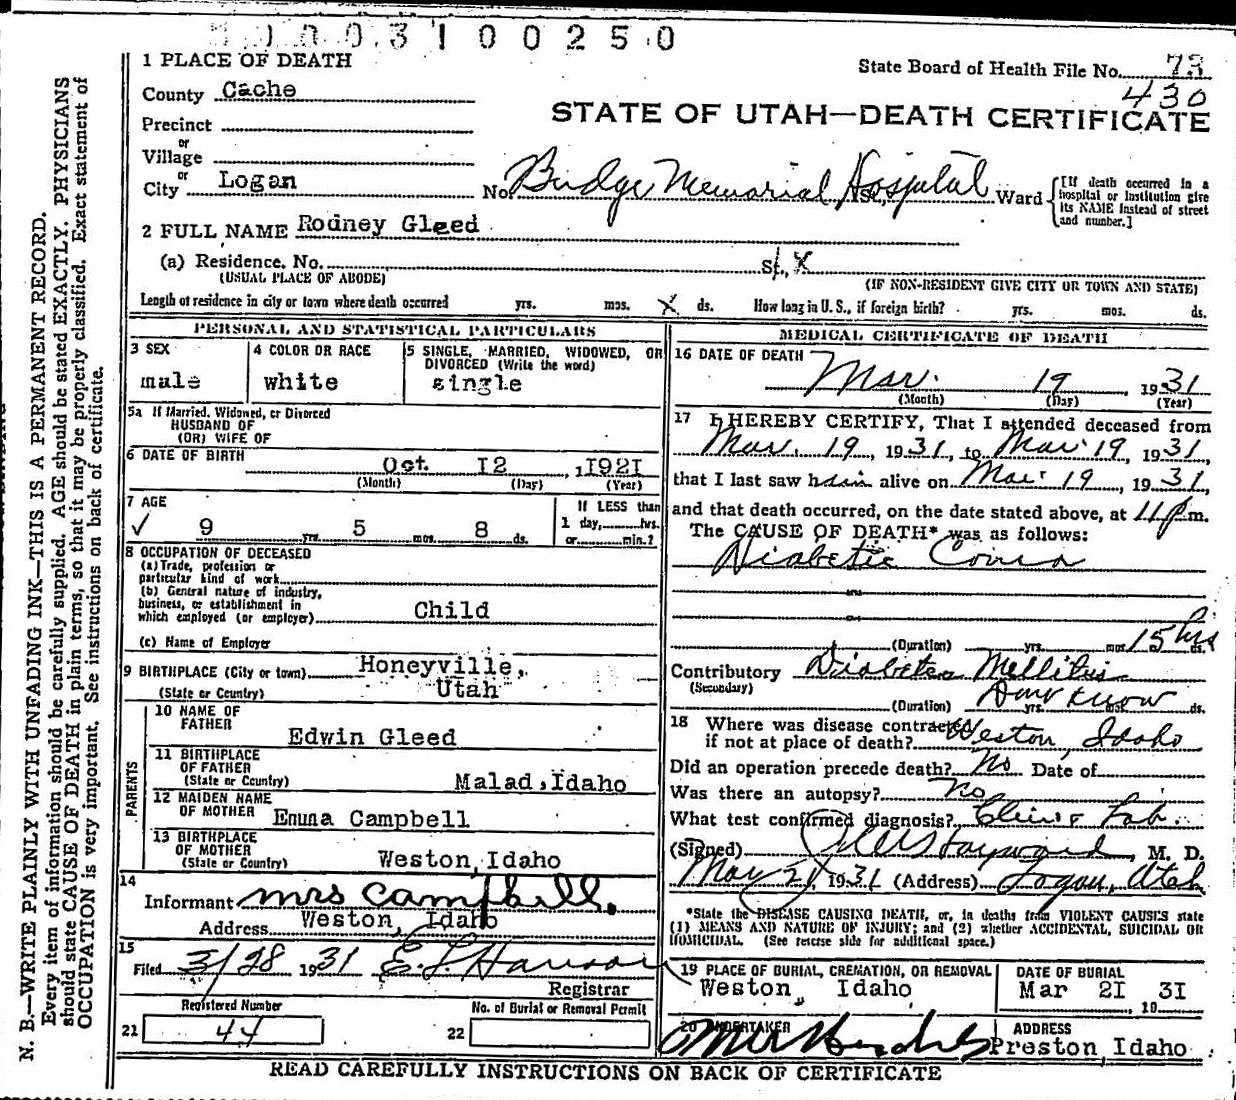 0 0 3 1 0 0 2 5 0
1 PLACE OF DEATH
State Board of Health File No. 73
430
County Cache
STATE OF UTAH—DEATH CERTIFICATE
Precinct
or
Village
or
City Logan
No. Budge Memorial Hospital St., Ward
[If death occurred in a hospital or institution give its NAME instead of street and number.]
2 FULL NAME Rodney Gleed
(a) Residence. No. St., X
(USUAL PLACE OF ABODE)
(IF NON-RESIDENT GIVE CITY OR TOWN AND STATE)
Length of residence in city or town where death occurred yrs. mos. X ds. How long in U. S., if foreign birth? yrs. mos. ds.
PERSONAL AND STATISTICAL PARTICULARS
3 SEX
male
4 COLOR OR RACE
white
5 SINGLE, MARRIED, WIDOWED, OR DIVORCED (Write the word)
single
5a If Married, Widowed, or Divorced
HUSBAND OF
(OR) WIFE OF
6 DATE OF BIRTH Oct. I2 , I92I
(Month) (Day) (Year)
7 AGE
✓ 9 yrs. 5 mos. 8 ds.
If LESS than
1 day, hrs.
or min.?
8 OCCUPATION OF DECEASED
(a) Trade, profession or
particular kind of work
(b) General nature of industry,
business, or establishment in
which employed (or employer) Child
(c) Name of Employer
9 BIRTHPLACE (City or town) Honeyville,
(State or Country) Utah
PARENTS
10 NAME OF
FATHER
Edwin Gleed
11 BIRTHPLACE
OF FATHER
(State or Country) Malad,Idaho
12 MAIDEN NAME
OF MOTHER Emma Campbell
13 BIRTHPLACE
OF MOTHER
(State or Country) Weston,Idaho
14
Informant Mrs Campbell.
Address Weston, Idaho
15
Filed 3/28 1931 E. L. Hanson
Registrar
Registered Number
21 44
No. of Burial or Removal Permit
22
MEDICAL CERTIFICATE OF DEATH
16 DATE OF DEATH
Mar. 19 , 1931
(Month) (Day) (Year)
17 I HEREBY CERTIFY, That I attended deceased from
Mar. 19, 1931, to Mar 19, 1931,
that I last saw him alive on Mar 19, 1931,
and that death occurred, on the date stated above, at 11 p m.
The CAUSE OF DEATH* was as follows:
Diabetic Coma
(Duration) yrs. mos. 15 hrs ds.
Contributory Diabetes Mellitus
(Secondary)
(Duration) Don't know yrs. ds.
18 Where was disease contracted
if not at place of death? Weston, Idaho
Did an operation precede death? No Date of
Was there an autopsy? No
What test confirmed diagnosis? Clin & Lab.
(Signed) Hayward, M. D.
May 21, 1931 (Address) Logan, Utah
*State the DISEASE CAUSING DEATH, or, in deaths from VIOLENT CAUSES state
(1) MEANS AND NATURE OF INJURY; and (2) whether ACCIDENTAL, SUICIDAL OR
HOMICIDAL. (See reverse side for additional space.)
19 PLACE OF BURIAL, CREMATION, OR REMOVAL
Weston, Idaho
DATE OF BURIAL
Mar 2I 3I
19
20 UNDERTAKER
ADDRESS
Preston,Idaho
READ CAREFULLY INSTRUCTIONS ON BACK OF CERTIFICATE
N. B.—WRITE PLAINLY WITH UNFADING INK—THIS IS A PERMANENT RECORD.
Every item of information should be carefully supplied. AGE should be stated EXACTLY. PHYSICIANS
should state CAUSE OF DEATH in plain terms, so that it may be properly classified. Exact statement of
OCCUPATION is very important. See instructions on back of certificate.